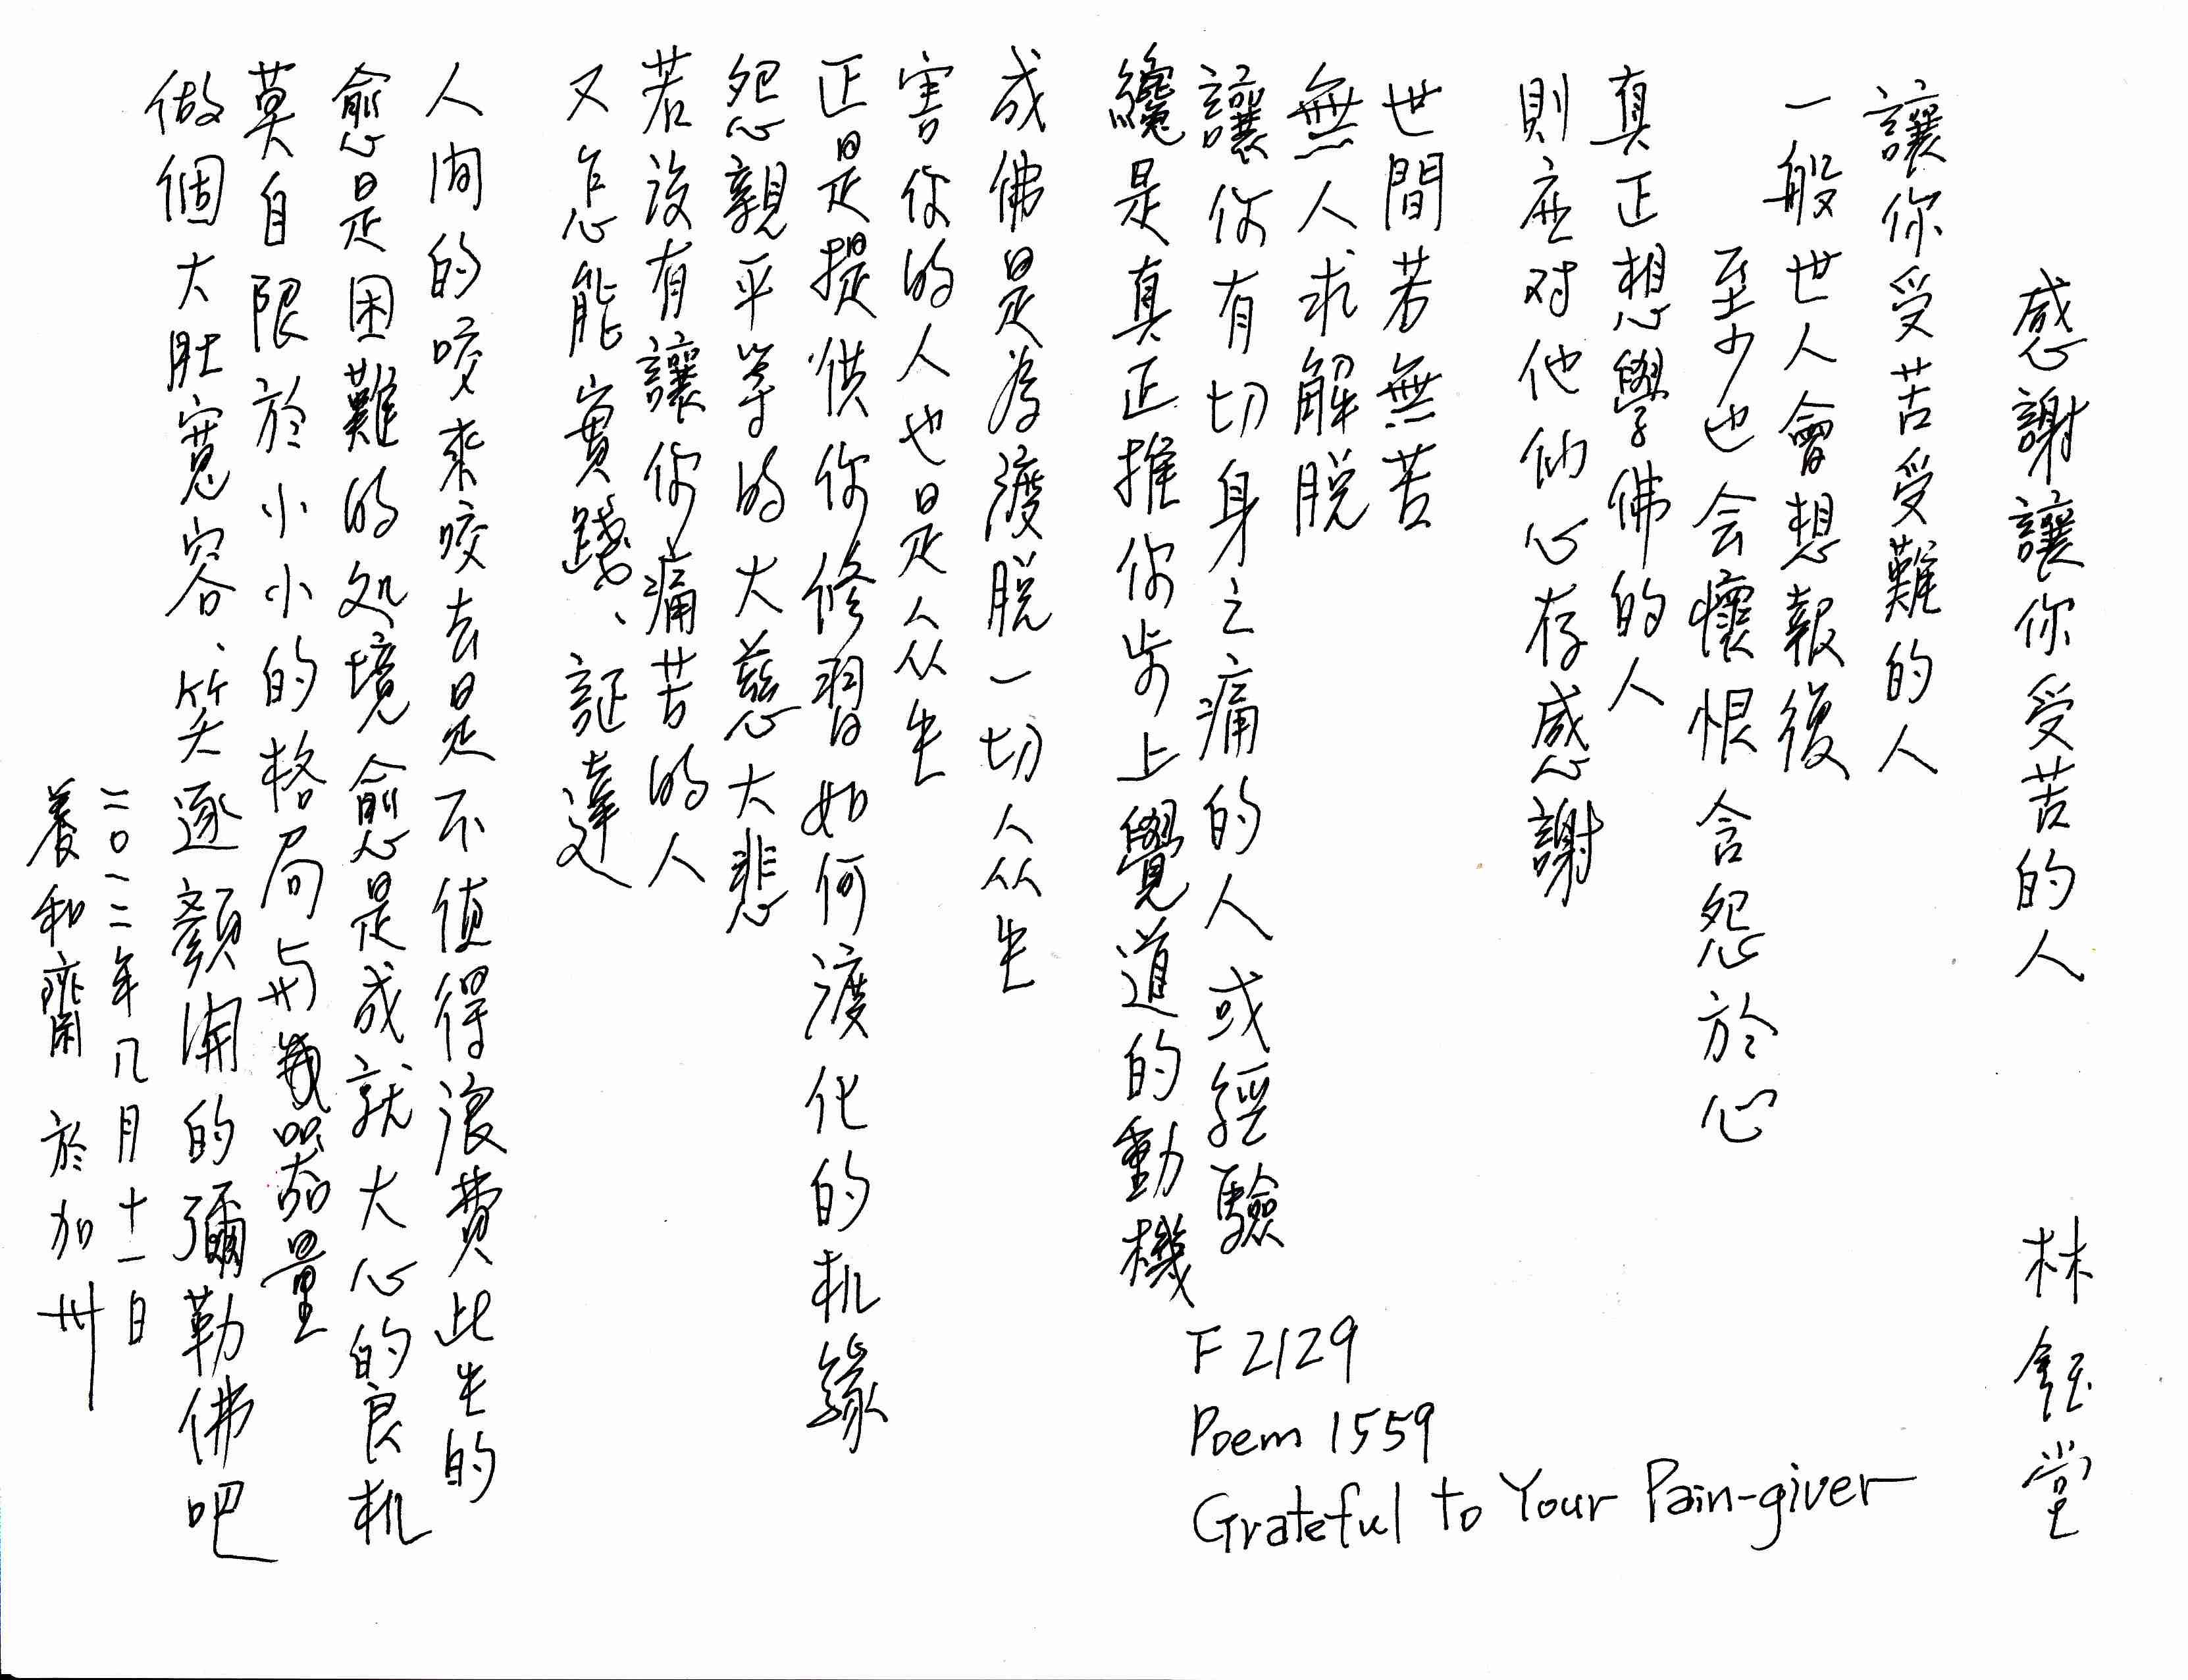 感謝讓你受苦的人 林鈺堂
讓你受苦受難的人
一般世人會想報復
至少也会懷恨含怨於心
真正想學佛的人
則应对他們心存感謝
世間若無苦
無人求解脱
讓你有切身之痛的人或經驗
纔是真正推你步上覺道的動機
成佛是為渡脱一切人众生
害你的人也是人众生
正是提供你修習如何渡化的机緣
怨親平等的大慈大悲
若没有讓你痛苦的人
又怎能實踐、証達
人間的咬來咬去是不值得浪費此生的
愈是困難的处境愈是成就大心的良机
莫自限於小小的格局与器量
做個大肚寬容、笑逐顏開的彌勒佛吧
二〇一二年八月十一日
養和齋 於加州
F 2129
Poem 1559
Grateful to Your Pain-giver